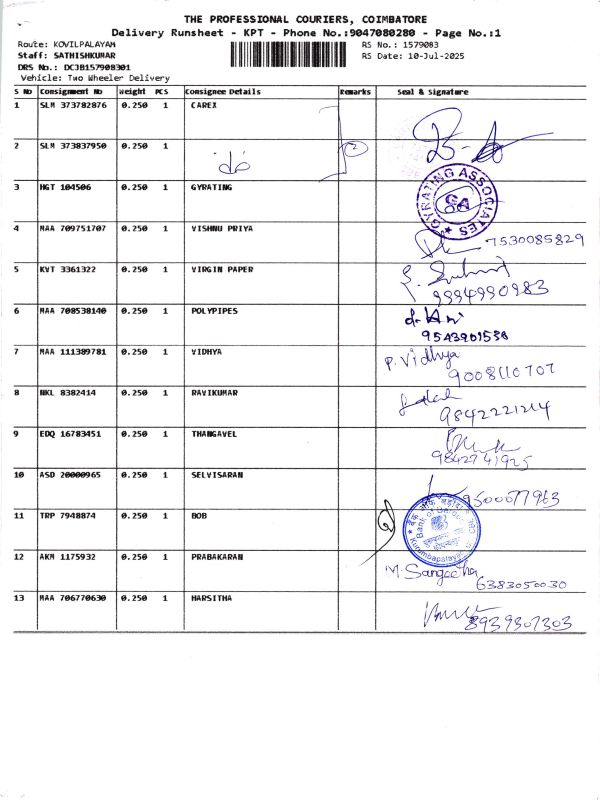 THE PROFESSIONAL COURIERS, COIMBATORE
Delivery Runsheet - KPT - Phone No.:9047080280 - Page No.:1
Route: KOVILPALAYAM RS No.: 1579083
Staff: SATHISHKUMAR RS Date: 10-Jul-2025
DRS No.: DCJB157908301
Vehicle: Two Wheeler Delivery
S No Consignment No Weight PCS Consignee Details Remarks Seal & Signature
1 SLM 373782876 0.250 1 CAREX
2 SLM 373837950 0.250 1 do
3 HGT 104506 0.250 1 GYRATING GYRATING ASSOCIATES
4 MAA 709751707 0.250 1 VISHNU PRIYA 7530085829
5 KVT 3361322 0.250 1 VIRGIN PAPER 9994990983
6 MAA 708538140 0.250 1 POLYPIPES 9543901538
7 MAA 111389781 0.250 1 VIDHYA P. Vidhya 9008110707
8 NKL 8382414 0.250 1 RAVIKUMAR 9842221214
9 EDQ 16783451 0.250 1 THANGAVEL 9842741925
10 ASD 20000965 0.250 1 SELVISARAN 9500077963
11 TRP 7948874 0.250 1 BOB Bank of Baroda
12 AKM 1175932 0.250 1 PRABAKARAN M. Sangeetha 6383050030
13 MAA 706770630 0.250 1 HARSITHA 8939307303